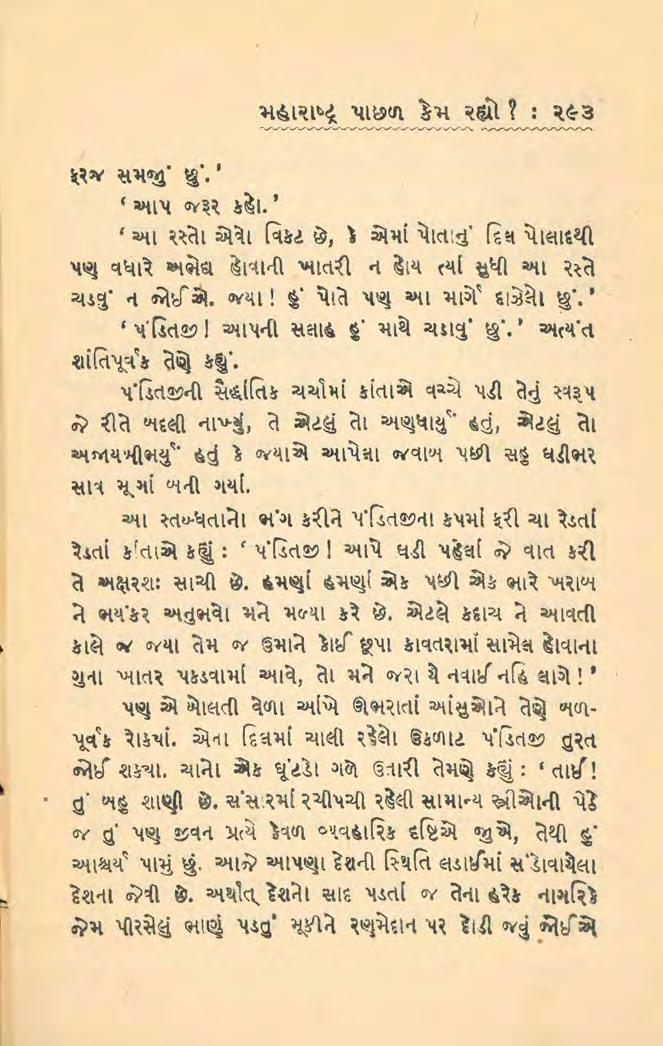 મહારાષ્ટ્ર પાછળ કેમ રહ્યો ? : ૨૯૩
ફરજ સમજું છું.'
'આપ જરૂર કહો.'
'આ રસ્તો એવો વિકટ છે, કે એમાં પોતાનું દિલ પોલાદથી
પણ વધારે અભેદ્ય હોવાની ખાતરી ન હોય ત્યાં સુધી આ રસ્તે
ચડવું ન જોઈએ. જયા! હું પોતે પણ આ માર્ગે દાઝેલો છું.'
'પંડિતજી! આપની સલાહ હું માથે ચડાવું છું.' અત્યંત
શાંતિપૂર્વક તેણે કહ્યું.
પંડિતજીની સૈદ્ધાંતિક ચર્ચામાં કાંતાએ વચ્ચે પડી તેનું સ્વરૂપ
જે રીતે બદલી નાખ્યું, તે એટલું તો અણધાર્યું હતું, એટલું તો
અજાયબીભર્યું હતું કે જયાએ આપેલા જવાબ પછી સહુ ઘડીભર
સાવ મૂગાં બની ગયાં.
આ સ્તબ્ધતાનો ભંગ કરીને પંડિતજીના કપમાં ફરી ચા રેડતાં
રેડતાં કાંતાએ કહ્યું : 'પંડિતજી! આપે ઘડી પહેલાં જે વાત કરી
તે અક્ષરશઃ સાચી છે. હમણાં હમણાં એક પછી એક ભારે ખરાબ
ને ભયંકર અનુભવો મને મળ્યા કરે છે. એટલે કદાચ ને આવતી
કાલે જ જયા તેમ જ ઉમાને કોઈ છૂપા કાવતરામાં સામેલ હોવાના
ગુના ખાતર પકડવામાં આવે, તો મને જરા યે નવાઈ નહિ લાગે!'
પણ એ બોલતી વેળા આંખે ઊભરાતાં આંસુઓને તેણે બળ-
પૂર્વક રોક્યાં. એના દિલમાં ચાલી રહેલો ઉકળાટ પંડિતજી તુરત
જોઈ શક્યા. ચાનો એક ઘૂંટડો ગળે ઉતારી તેમણે કહ્યું : 'તાઈ!
તું બહુ શાણી છે. સંસારમાં રચીપચી રહેલી સામાન્ય સ્ત્રીઓની પેઠે
જ તું પણ જીવન પ્રત્યે કેવળ વ્યવહારિક દષ્ટિએ જુએ, તેથી હું
આશ્ચર્ય પામું છું. આજે આપણા દેશની સ્થિતિ લડાઈમાં સંડોવાયેલા
દેશના જેવી છે. અર્થાત્ દેશનો સાદ પડતાં જ તેના હરેક નાગરિકે
જેમ પીરસેલું ભાણું પડતું મૂકીને રણમેદાન પર દોડી જવું જોઈએ